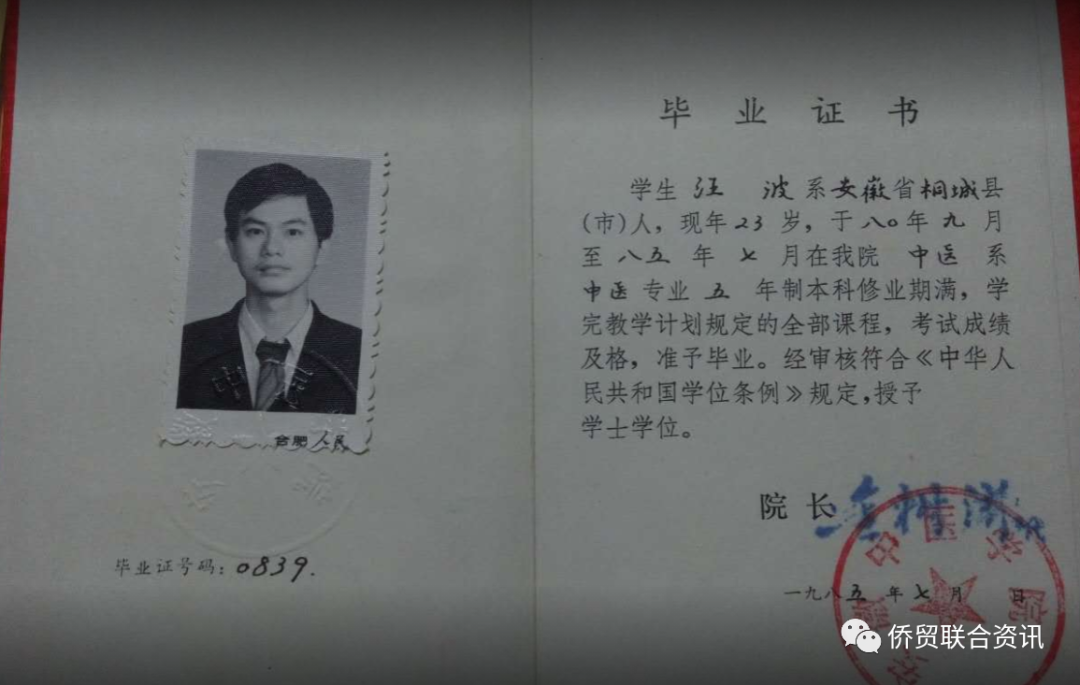 中 京
合肥人民
毕业证号码：0839.
毕 业 证 书
学生 汪 波 系安徽省桐城县
(市)人，现年23岁，于八〇年九月
至八五年七月在我院 中医 系
中医专业五年制本科修业期满，学
完教学计划规定的全部课程，考试成绩
及格，准予毕业。经审核符合《中华人
民共和国学位条例》规定，授予
学士学位。
院长
中医学院
一九八五年七月 日
侨贸联合资讯